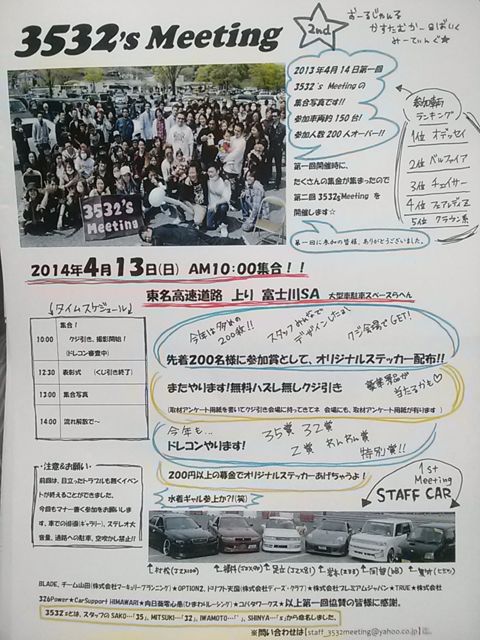 3532's Meeting
2nd
おーるじゃんる
かすたむかー&ばいく
みーてぃんぐ☆
2013年4月14日第一回
3532's Meetingの
集合写真です!!
参加車両約150台!
参加人数200人オーバー!!
第一回開催時に、
たくさんの募金が集まったので
第二回3532s Meetingを
開催します☆
第一回に参加の皆様、ありがとうございました。
参加車両
ランキング
1位 オデッセイ
2位 ベルファイア
3位 チェイサー
4位 フェアレディZ
5位 クラウン系
3532's
Meeting
2014年4月13日(日) AM10:00集合!!
東名高速道路 上り 富士川SA 大型車駐車スペースらへん
タイムスケジュール
10:00 集合!
クジ引き、撮影開始!
(ドレコン審査中)
12:30 表彰式 (くじ引き終了)
13:00 集合写真
14:00 流れ解散で~
今年は多めの
200枚!!
スタッフみんなで
デザインしたよ!
クジ会場でGET!
先着200名様に参加賞として、オリジナルステッカー配布!!
またやります!無料ハズレ無しクジ引き
豪華景品が
当たるかも♡
(取材アンケート用紙を書いてクジ引き会場に持ってきてネ 会場にも、取材アンケート用紙が有ります)
今年も…
ドレコンやります!
35賞 32賞
Z賞 わんわん賞
特別賞!!
200円以上の募金でオリジナルステッカーあげちゃうよ!
水着ギャル参上か?!(笑)
1st
Meeting
STAFF CAR
・注意&お願い・
前回は、目立ったトラブルも無くイベント
が終えることができました。
今回もマナー良く参加をお願いしま
す。車での徘徊(ギャラリー)、ステレオ大
音量、通路への駐車、空吹かし禁止!!
BLADE、チーム山田(株式会社マーキュリープランニング)★OPTION2、ドリフト天国(株式会社ディーズ・クラブ)★株式会社プレミアムジャパン★TRUE★株式会社
326Power★CarSupport HIMAWARI★向日葵電心愚(ひまわりレーシング)★コバタワークス★以上第一回協賛の皆様に感謝。
3532sとは、スタッフのSAKO…「35」、MITSUKI…「32」、IWAMOTO…「'」、SHINYA…「s」から命名しました。
※問い合わせは[staff_3532meeting@yahoo.co.jp]迄。